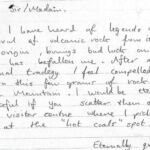 Sir/Madam.
I have heard of legends
val of volcanic rock from i
origin, brings bad luck on
has befallen me. After a
al tragedy I feel compelled
n this few grams of rock
Mountain. I would be
ful if you scatter them o
visitor centre where I pro
at the "hot coals" spot.
Eternally gr